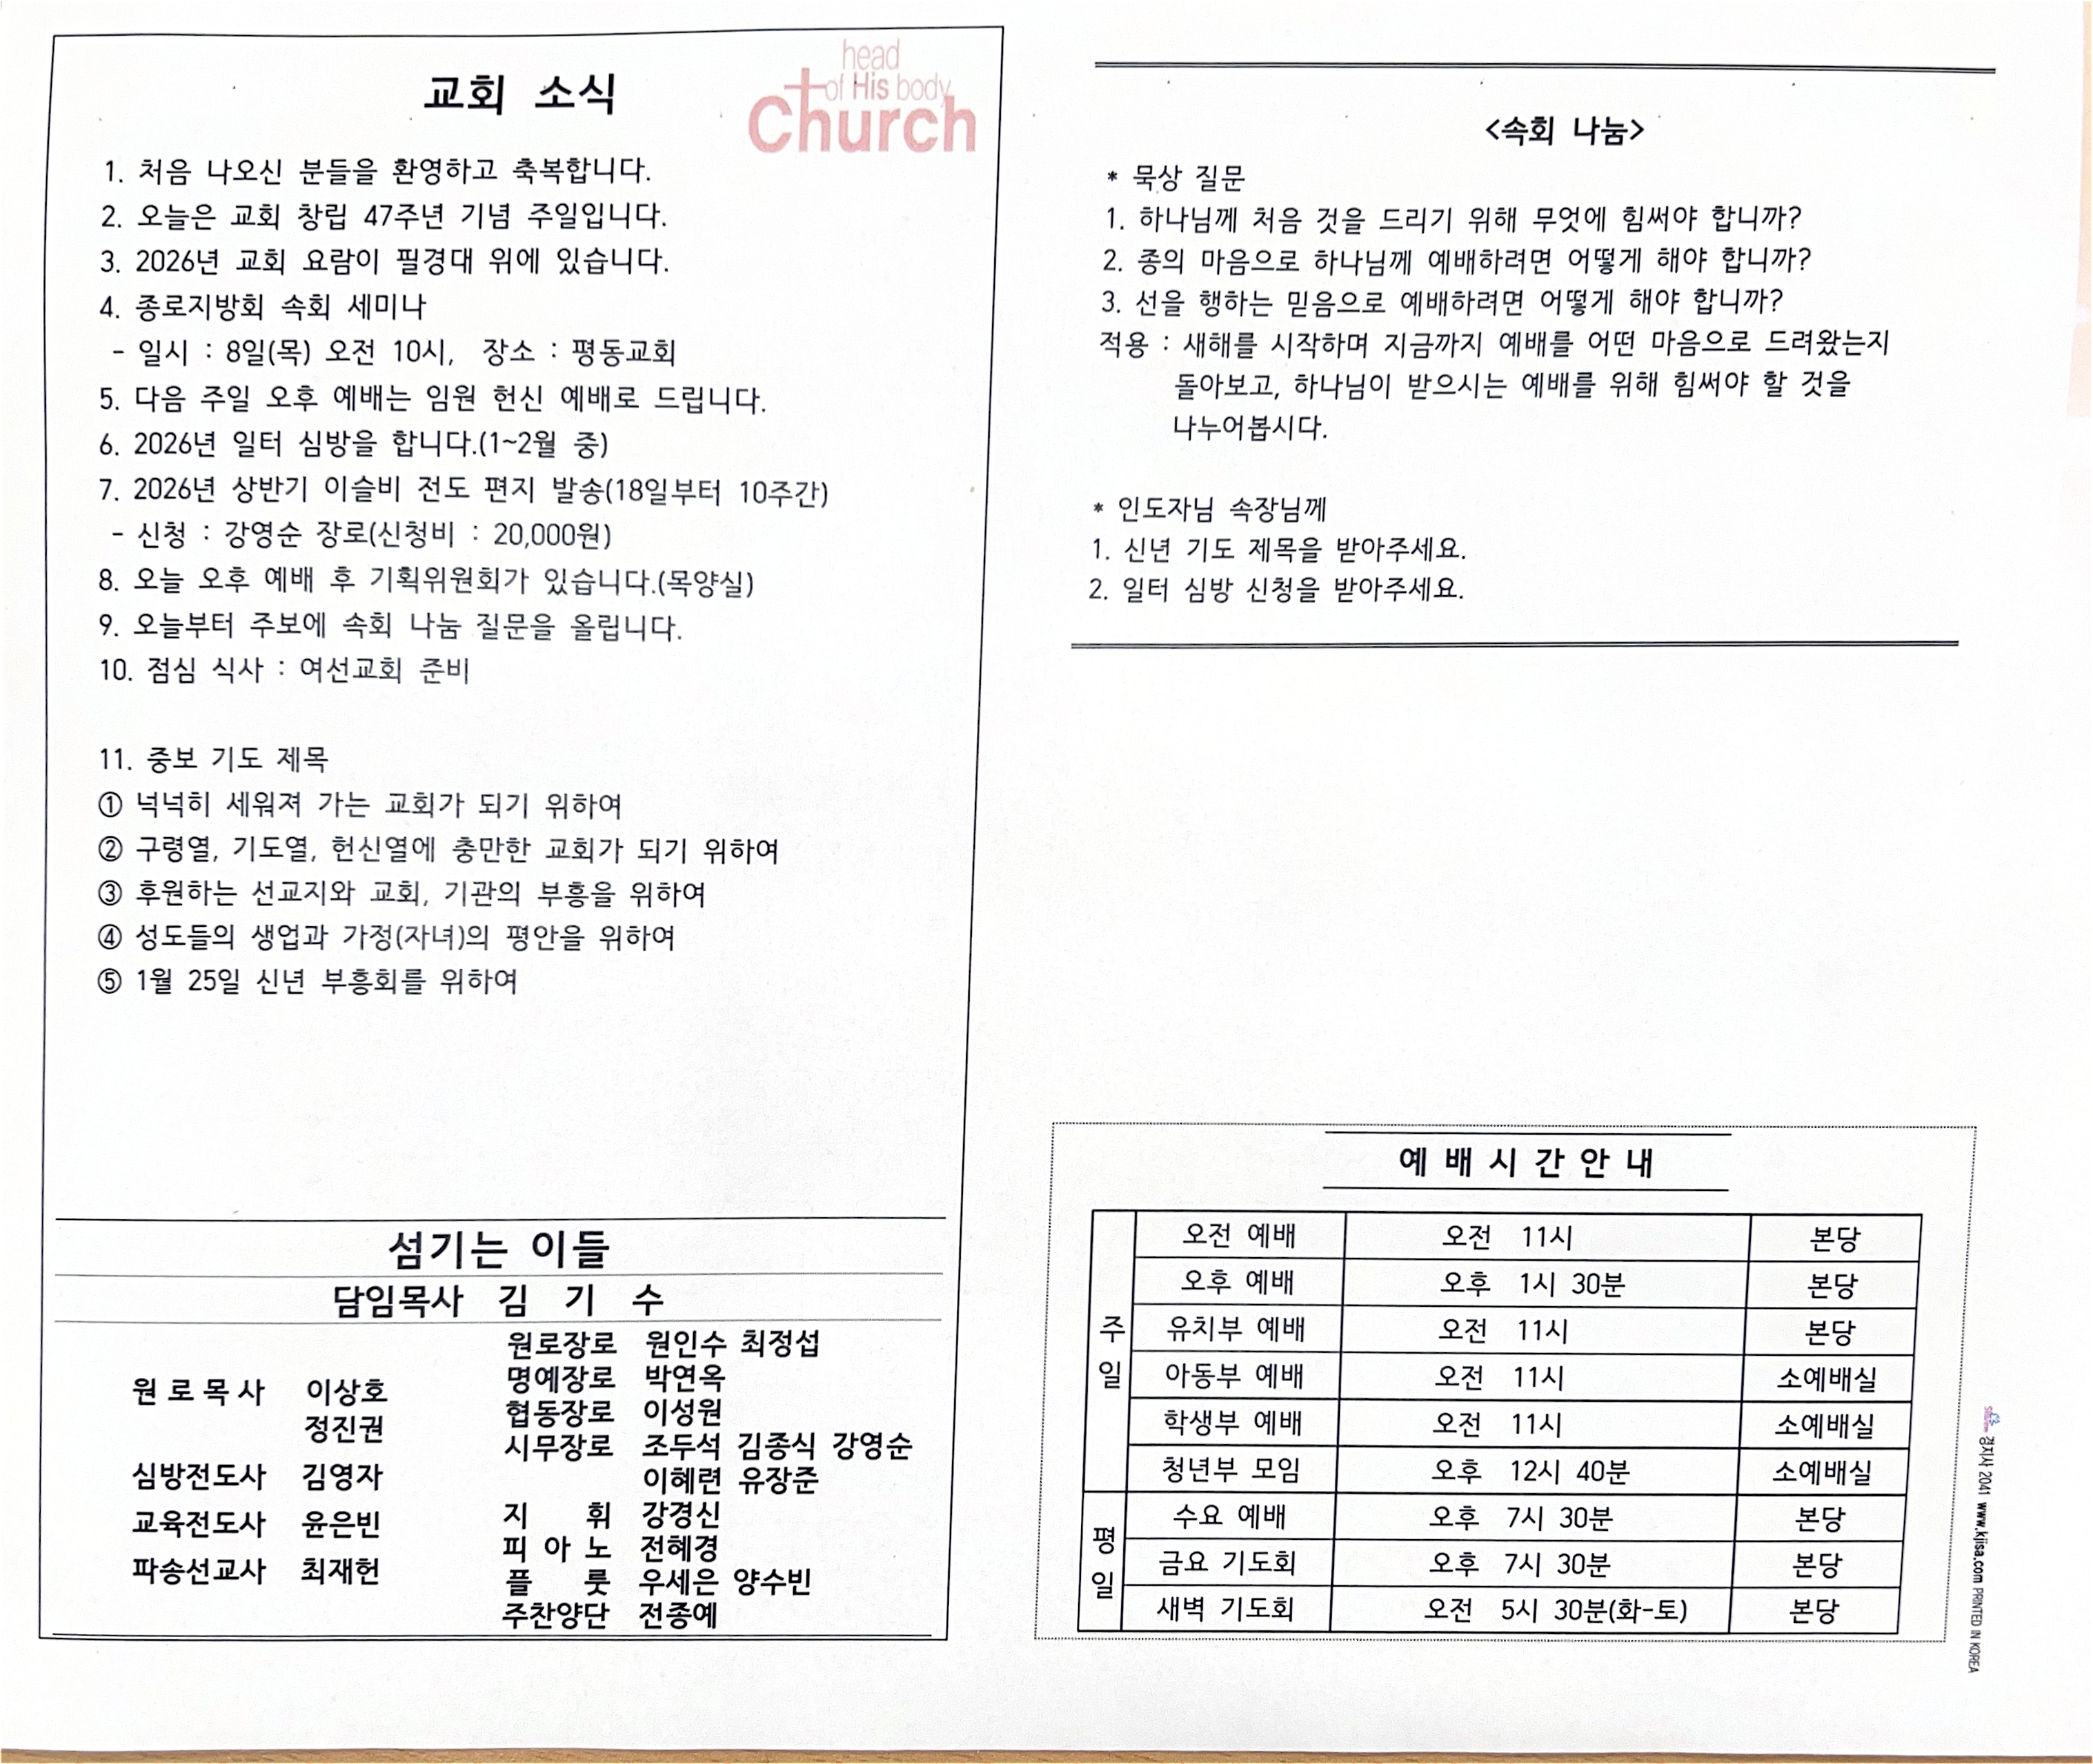 교회 소식
head
of His body
Church
1. 처음 나오신 분들을 환영하고 축복합니다.
2. 오늘은 교회 창립 47주년 기념 주일입니다.
3. 2026년 교회 요람이 필경대 위에 있습니다.
4. 종로지방회 속회 세미나
- 일시 : 8일(목) 오전 10시, 장소 : 평동교회
5. 다음 주일 오후 예배는 임원 헌신 예배로 드립니다.
6. 2026년 일터 심방을 합니다.(1~2월 중)
7. 2026년 상반기 이슬비 전도 편지 발송(18일부터 10주간)
- 신청 : 강영순 장로(신청비 : 20,000원)
8. 오늘 오후 예배 후 기획위원회가 있습니다.(목양실)
9. 오늘부터 주보에 속회 나눔 질문을 올립니다.
10. 점심 식사 : 여선교회 준비
11. 중보 기도 제목
① 넉넉히 세워져 가는 교회가 되기 위하여
② 구령열, 기도열, 헌신열에 충만한 교회가 되기 위하여
③ 후원하는 선교지와 교회, 기관의 부흥을 위하여
④ 성도들의 생업과 가정(자녀)의 평안을 위하여
⑤ 1월 25일 신년 부흥회를 위하여
섬기는 이들
담임목사 김 기 수
원 로 목 사 이상호
정진권
심방전도사 김영자
교육전도사 윤은빈
파송선교사 최재헌
원로장로 원인수 최정섭
명예장로 박연옥
협동장로 이성원
시무장로 조두석 김종식 강영순
이혜련 유장준
지 휘 강경신
피 아 노 전혜경
플 룻 우세은 양수빈
주찬양단 전종예
<속회 나눔>
* 묵상 질문
1. 하나님께 처음 것을 드리기 위해 무엇에 힘써야 합니까?
2. 종의 마음으로 하나님께 예배하려면 어떻게 해야 합니까?
3. 선을 행하는 믿음으로 예배하려면 어떻게 해야 합니까?
적용 : 새해를 시작하며 지금까지 예배를 어떤 마음으로 드려왔는지
돌아보고, 하나님이 받으시는 예배를 위해 힘써야 할 것을
나누어봅시다.
* 인도자님 속장님께
1. 신년 기도 제목을 받아주세요.
2. 일터 심방 신청을 받아주세요.
예 배 시 간 안 내
주일
오전 예배 오전 11시 본당
오후 예배 오후 1시 30분 본당
유치부 예배 오전 11시 본당
아동부 예배 오전 11시 소예배실
학생부 예배 오전 11시 소예배실
청년부 모임 오후 12시 40분 소예배실
평일
수요 예배 오후 7시 30분 본당
금요 기도회 오후 7시 30분 본당
새벽 기도회 오전 5시 30분(화-토) 본당
경지사 2041 www.kjisa.com PRINTED IN KOREA